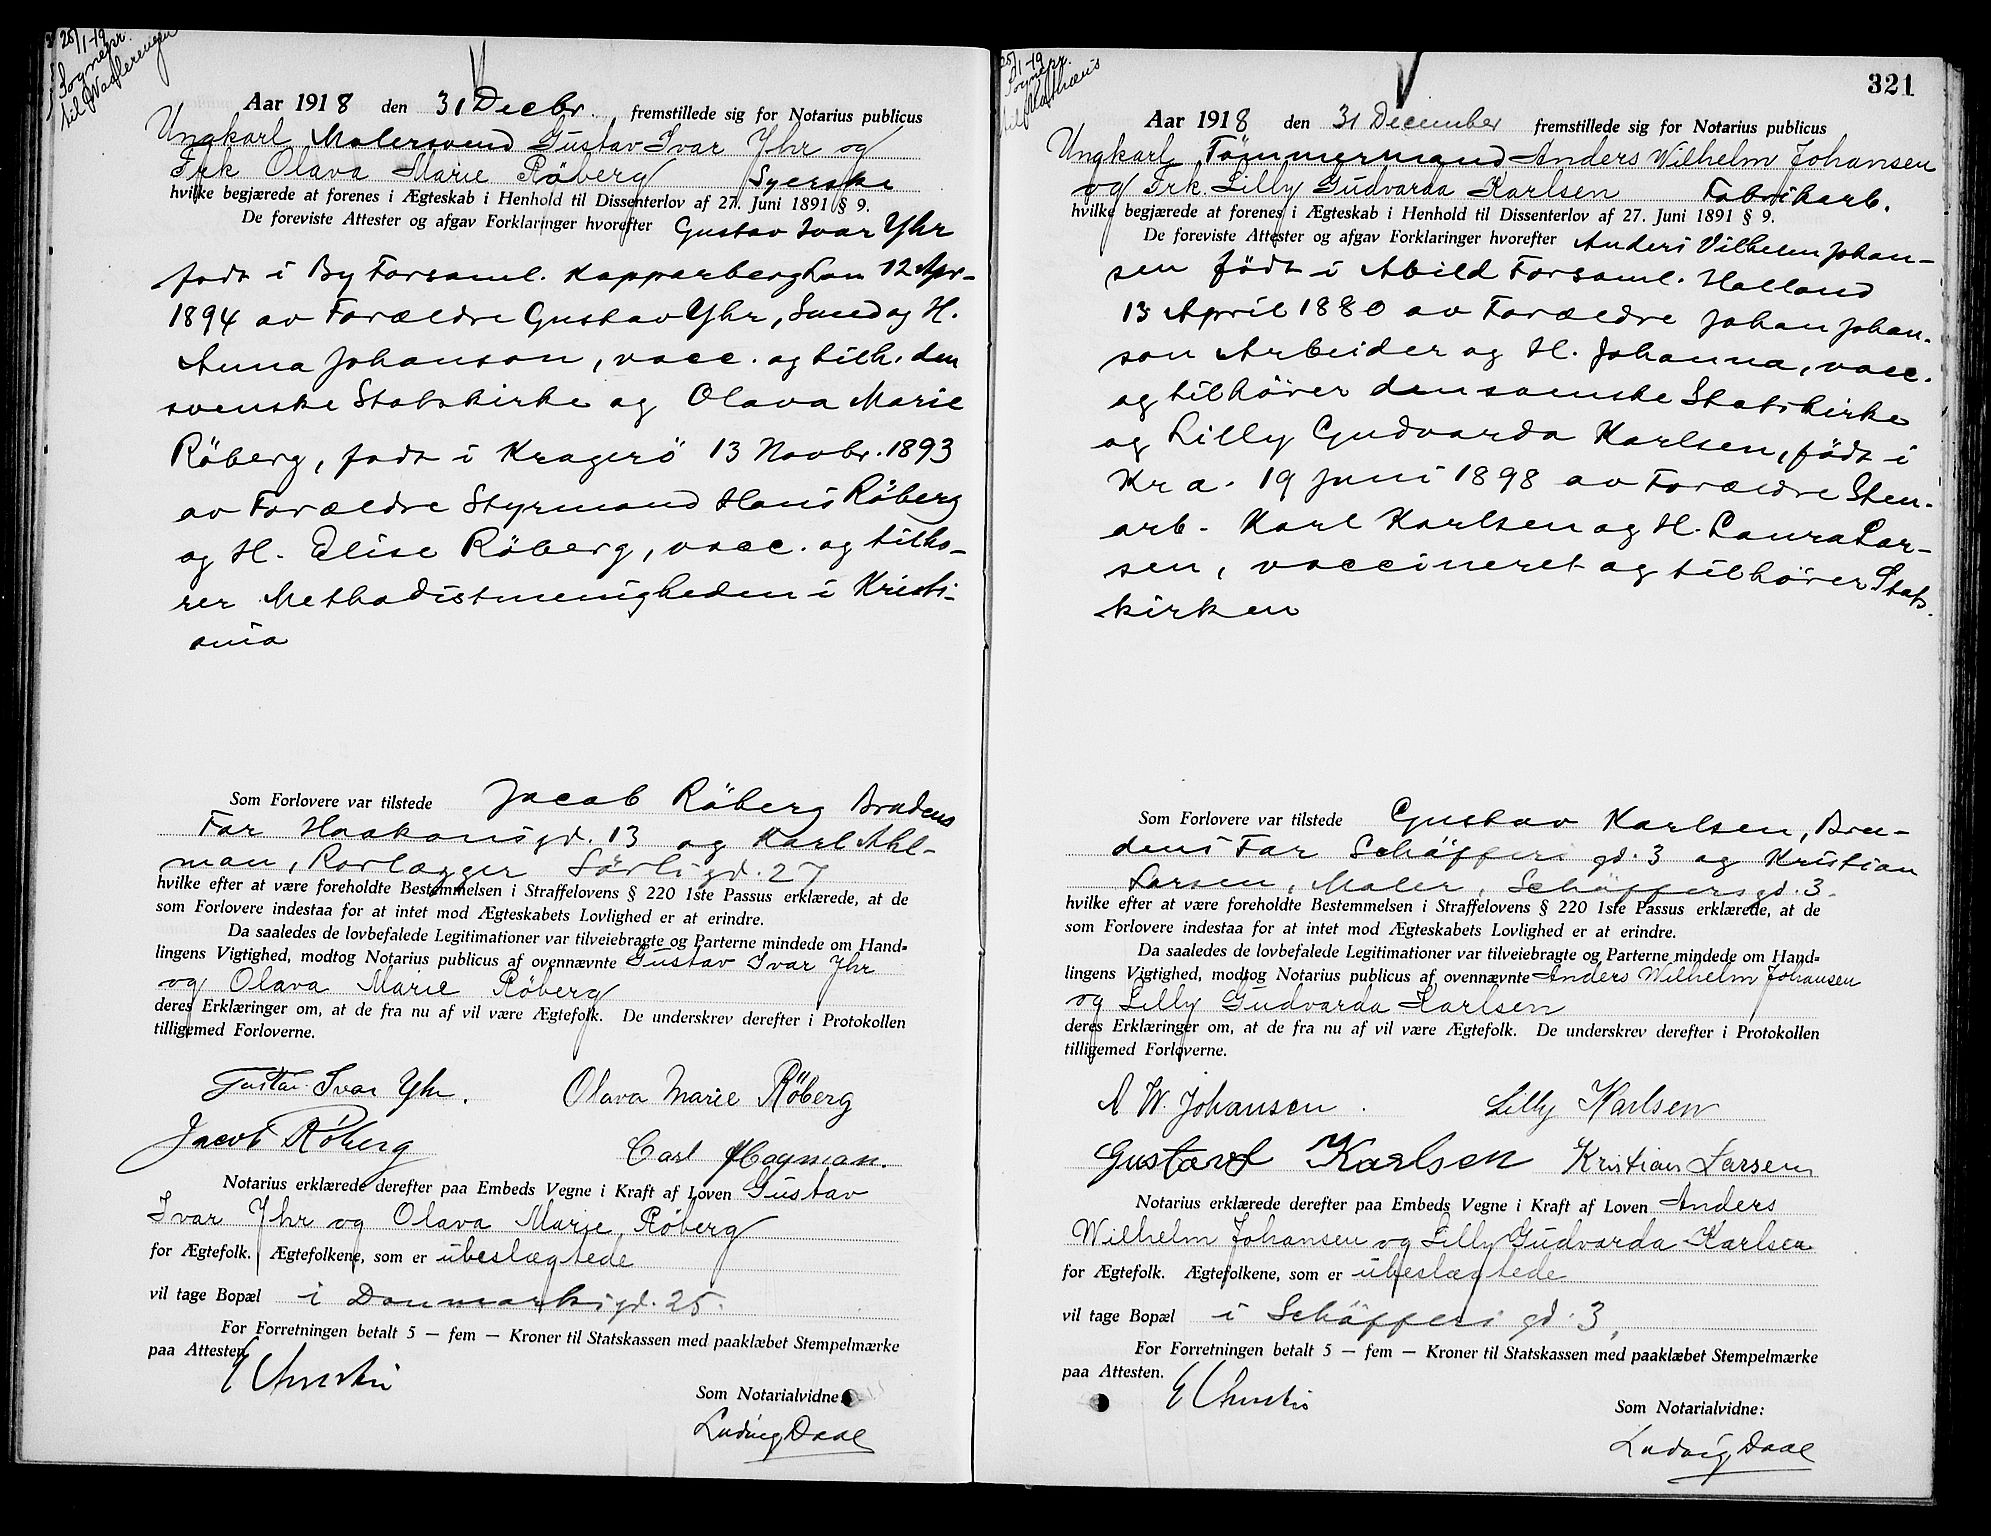 25/1-19
Sognepr.
til Vaalerengen
Aar 1918 den 31 Decbr. fremstillede sig for Notarius publicus
Ungkarl Malersvend Gustav Ivar Yhr og
Frk Olava Marie Röberg Syerske
hvilke begjærede at forenes i Ægteskab i Henhold til Dissenterlov af 27. Juni 1891 § 9.
De foreviste Attester og afgav Forklaringer hvorefter Gustav Ivar Yhr
født i By Forsaml. Kopparberg Län 12 Apr-
1894 av Forældre Gustav Yhr, Smed og H.
Anna Johanson, vacc. og tilh. den
svenske Statskirke og Olava Marie
Röberg, født i Kragerö 13 Novbr. 1893
av Forældre Styrmand Hans Röberg
og H. Elise Röberg, vacc. og tilhö-
rer Methodistmenigheden i Kristi-
ania
Som Forlovere var tilstede Jacob Röberg Brudens
Far Haakonsgd. 13 og Karl Ahl-
man, Rorlægger Sörligd. 27
hvilke efter at være foreholdte Bestemmelsen i Straffelovens § 220 1ste Passus erklærede, at de
som Forlovere indestaa for at intet mod Ægteskabets Lovlighed er at erindre.
Da saaledes de lovbefalede Legitimationer var tilveiebragte og Parterne mindede om Hand-
lingens Vigtighed, modtog Notarius publicus af ovennævnte Gustav Ivar Yhr
og Olava Marie Röberg
deres Erklæringer om, at de fra nu af vil være Ægtefolk. De underskrev derefter i Protokollen
tilligemed Forloverne.
Gustav Ivar Yhr. Olava Marie Röberg
Jacob Röberg Carl
Notarius erklærede derefter paa Embeds Vegne i Kraft af Loven Gustav
Ivar Yhr og Olava Marie Röberg
for Ægtefolk. Ægtefolkene, som er ubeslægtede
vil tage Bopæl i Danmarksgd. 25.
For Forretningen betalt 5 — fem — Kroner til Statskassen med paaklæbet Stempelmærke
paa Attesten.
E Christie
Som Notarialvidne
Ludvig Daae
321
25/1-19
Sognepr.
til Mathæus
Aar 1918 den 31 December fremstillede sig for Notarius publicus
Ungkarl Tömmermand Anders Wilhelm Johansen
og Frk. Lilly Gudvarda Karlsen Fabrikarb.
hvilke begjærede at forenes i Ægteskab i Henhold til Dissenterlov af 27. Juni 1891 § 9.
De foreviste Attester og afgav Forklaringer hvorefter Anders Vilhelm Johan-
sen født i Abild Forsaml. Halland
13 April 1880 av Forældre Johan Johan-
son Arbeider og H. Johanna, vacc.
og tilhörer den svenske Statskirke
og Lilly Gudvarda Karlsen, født i
Kra. 19 Juni 1898 av Forældre Sten-
arb. Karl Karlsen og H. Laura Lar-
sen, vaccineret og tilhörer Stats-
kirken
Som Forlovere var tilstede Gustav Karlsen, Bru-
dens Far Schöffers gd. 3 og Kristian
Larsen, Maler, Schöffersgd. 3.
hvilke efter at være foreholdte Bestemmelsen i Straffelovens § 220 1ste Passus erklærede, at de
som Forlovere indestaa for at intet mod Ægteskabets Lovlighed er at erindre.
Da saaledes de lovbefalede Legitimationer var tilveiebragte og Parterne mindede om Hand-
lingens Vigtighed, modtog Notarius publicus af ovennævnte Anders Wilhelm Johansen
og Lilly Gudvarda Karlsen
deres Erklæringer om, at de fra nu af vil være Ægtefolk. De underskrev derefter i Protokollen
tilligemed Forloverne.
A W. Johansen. Lilly Karlsen
Gustavf Karlsen Kristian Larsen
Notarius erklærede derefter paa Embeds Vegne i Kraft af Loven Anders
Wilhelm Johansen og Lilly Gudvarda Karlsen
for Ægtefolk. Ægtefolkene, som er ubeslægtede
vil tage Bopæl i Schöffers gd. 3,
For Forretningen betalt 5 — fem — Kroner til Statskassen med paaklæbet Stempelmærke
paa Attesten.
E Christie
Som Notarialvidne:
Ludvig Daae